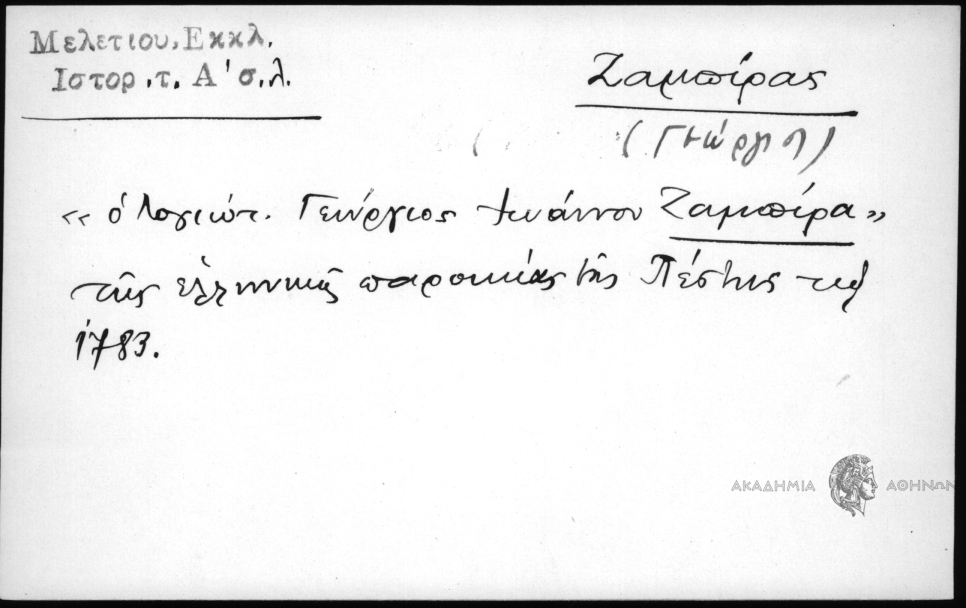 Μελετιου, Εκκλ.
Ιστορ. τ. Α' σ. λ.
Ζαμπίρας
(Γεώργιος)
« ὁ λογιώτ. Γεώργιος Ἰωάννου Ζαμπίρα »
τῆς ἑλληνικῆς παροικίας τῆς Πέστης τῷ
1783.
ΑΚΑΔΗΜΙΑ ΑΘΗΝΩΝ